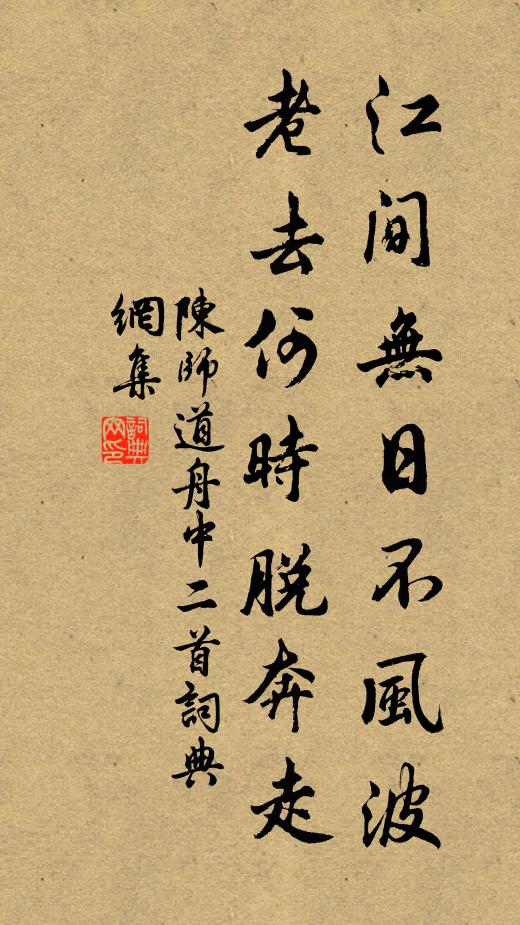 江間無日不風波
老去何時脫奔走
陳師道舟中二首詞典
網集
詞典网印